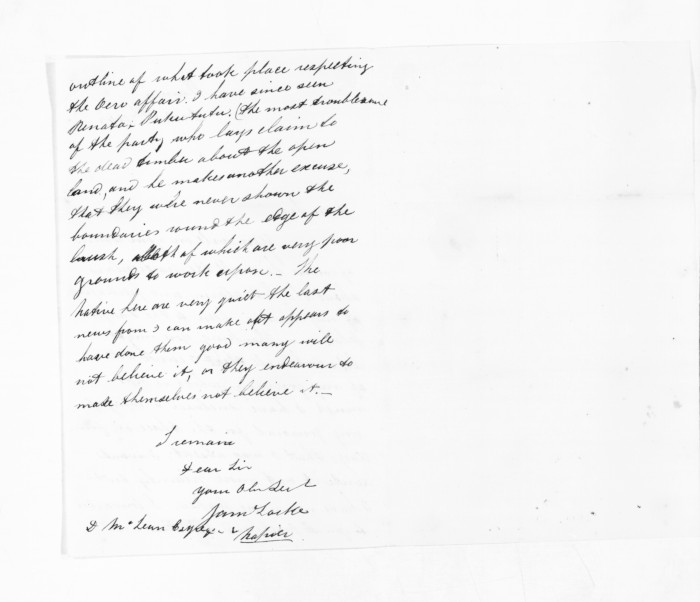 outline of what took place respecting
the Oero affair. I have since seen
Renata; Pukututu. (the most troublesome
of the party who lays claim to
the dead timber about the open
land, and he makes another excuse,
that they were never shown the
boundaries round the edge of the
bush, both of which are very poor
grounds to work upon. – The
native here are very quiet the last
news from I can make out appears to
have done them good many will
not believe it, or they endeavour to
made themselves not believe it. –
I remain
Dear Sir
your Obt Sert
Jam Locke
D Mc Lean Esqre
Napier